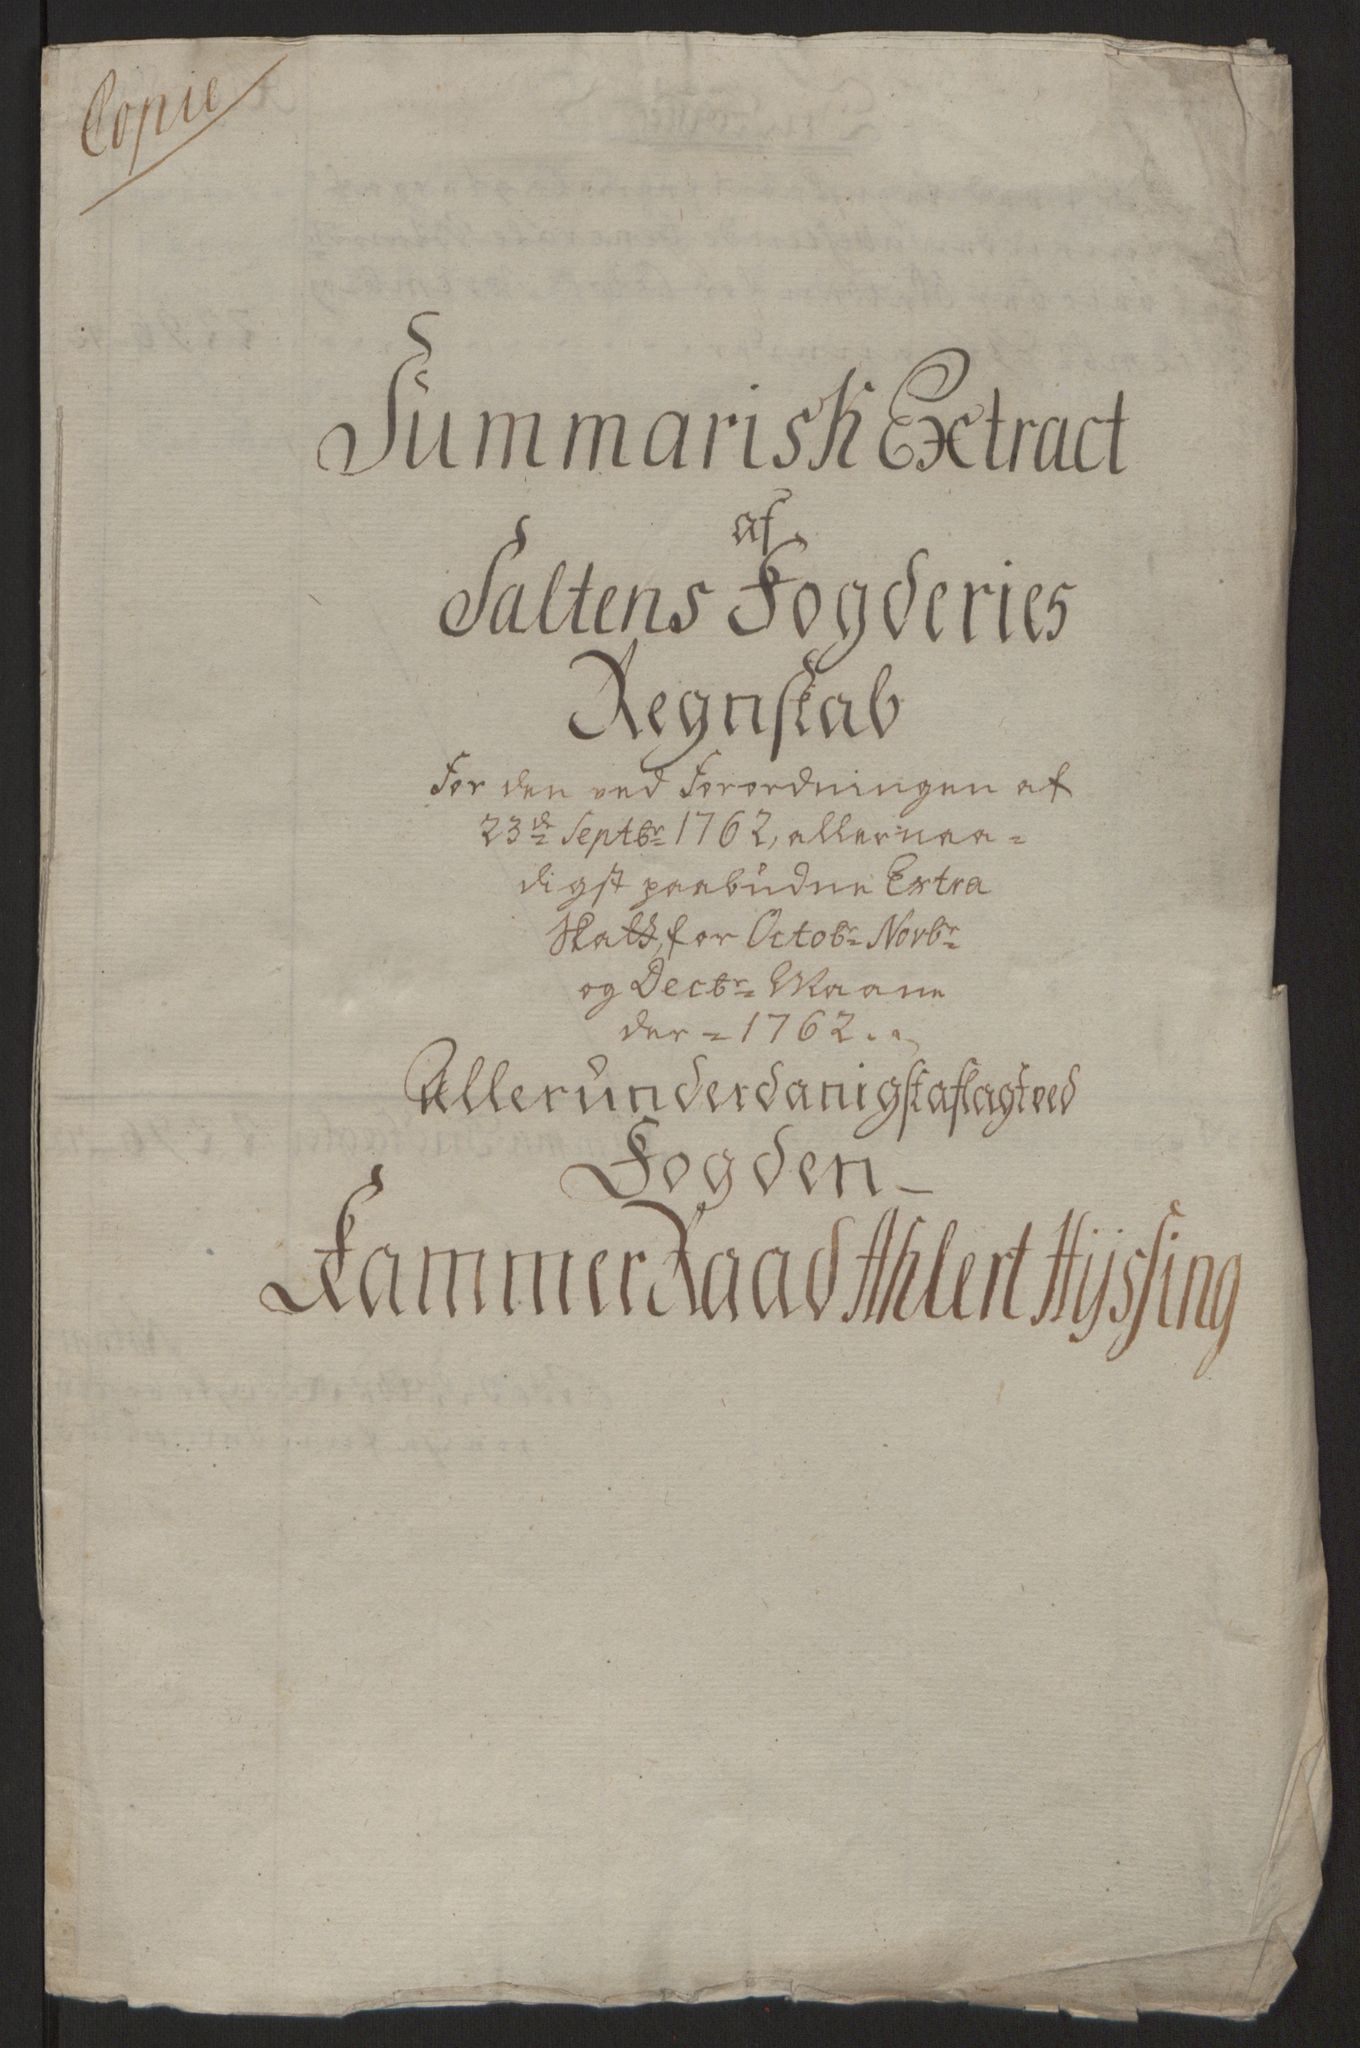 Copie
Summarisk Extract
af
Saltens Fogderies
Regnskab
For den ved Forordningen af
23de Septbr 1762, allernaa=
digst paabudne Extra
Skatt, for Octobr Novbr
og Decbr Maane
der = 1762.
Allerunderdanigst aflagt ved
Fogden
Kammer Raad Ahlert Hÿssing